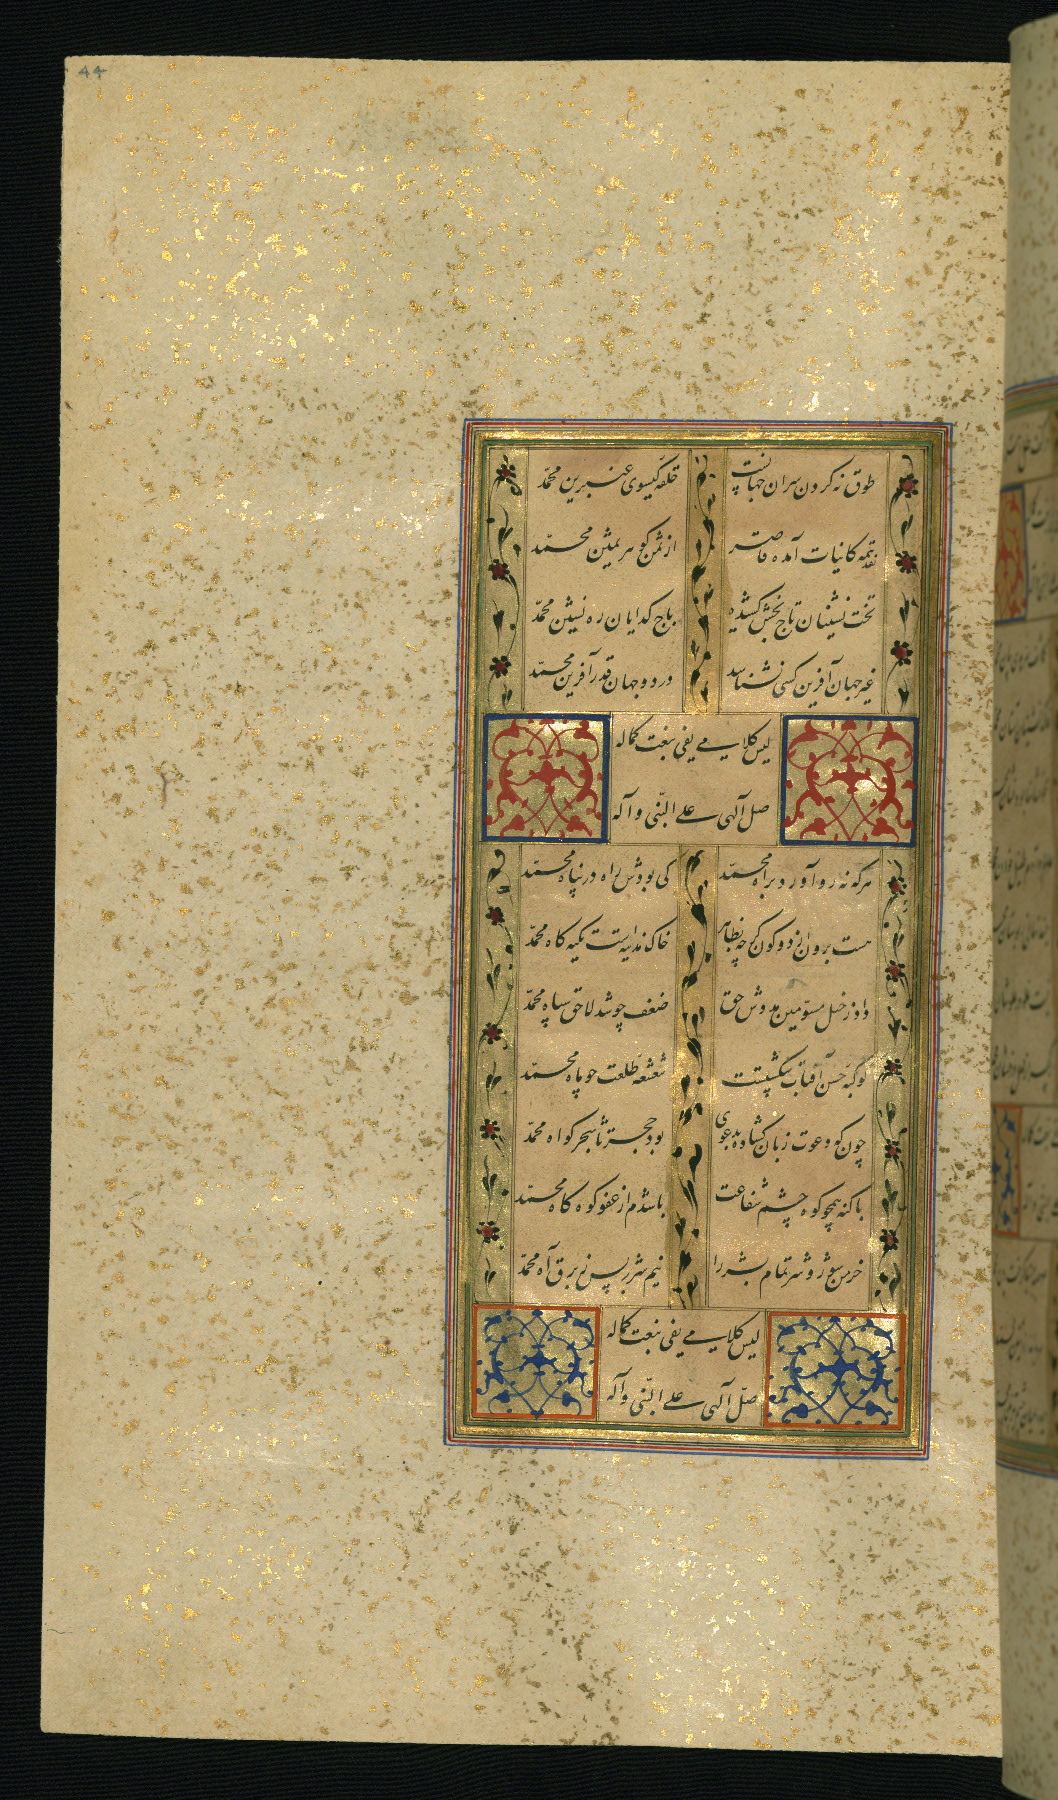 44
طوق نه گردن سران جهانست حلقه گیسوی عنبرین محمد
نقد همه کاینات آمده قاصر از ثمن گوهر ثمین محمد
تخت نشینان تاج بخش کشیده باج گدایان ره نشین محمد
غیر جهان آفرین کسی نشناسد در دو جهان قدر آفرین محمد
لیس کلامی یفی بنعت کماله
صل الهی علی النبی و آله
هر که نه رو آورد براه محمد کی بودش راه در پناه محمد
هست برون از دو کون گر چه بظاهر خاک مدینه است تکیه گاه محمد
داد ز خیل مسومین مددش حق ضعف چو شد لاحق سپاه محمد
کوکبه حسن آفتاب شکستست شعشعه طلعت چو ماه محمد
چون گه دعوت زبان گشاده بدعوی بود حجر تا شجر گواه محمد
با گنه همچو کوه چشم شفاعت باشدم از عفو کوه کاه محمد
خرمن سوز و شر تمام بشر را نیم شرر بس ز برق آه محمد
لیس کلامی یفی بنعت کماله
صل الهی علی النبی و آله